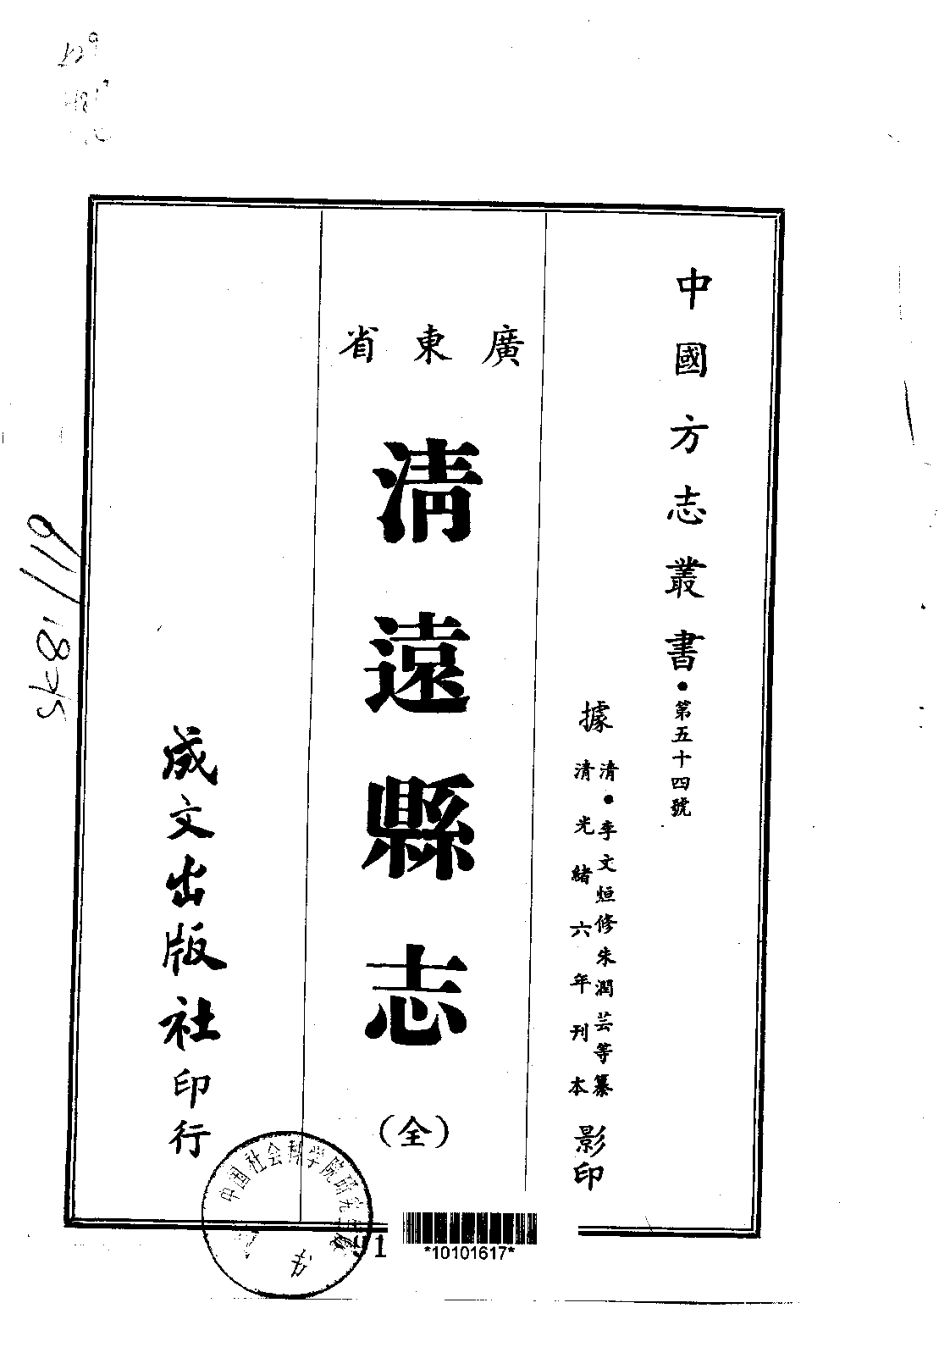 中國方志叢書•第五十四號
據
清•李文烜修朱潤芸等纂
清光緒六年刊本
影印
廣東省
清遠縣志
(全)
成文出版社印行
中国社会科学院研究
91
*10101617*